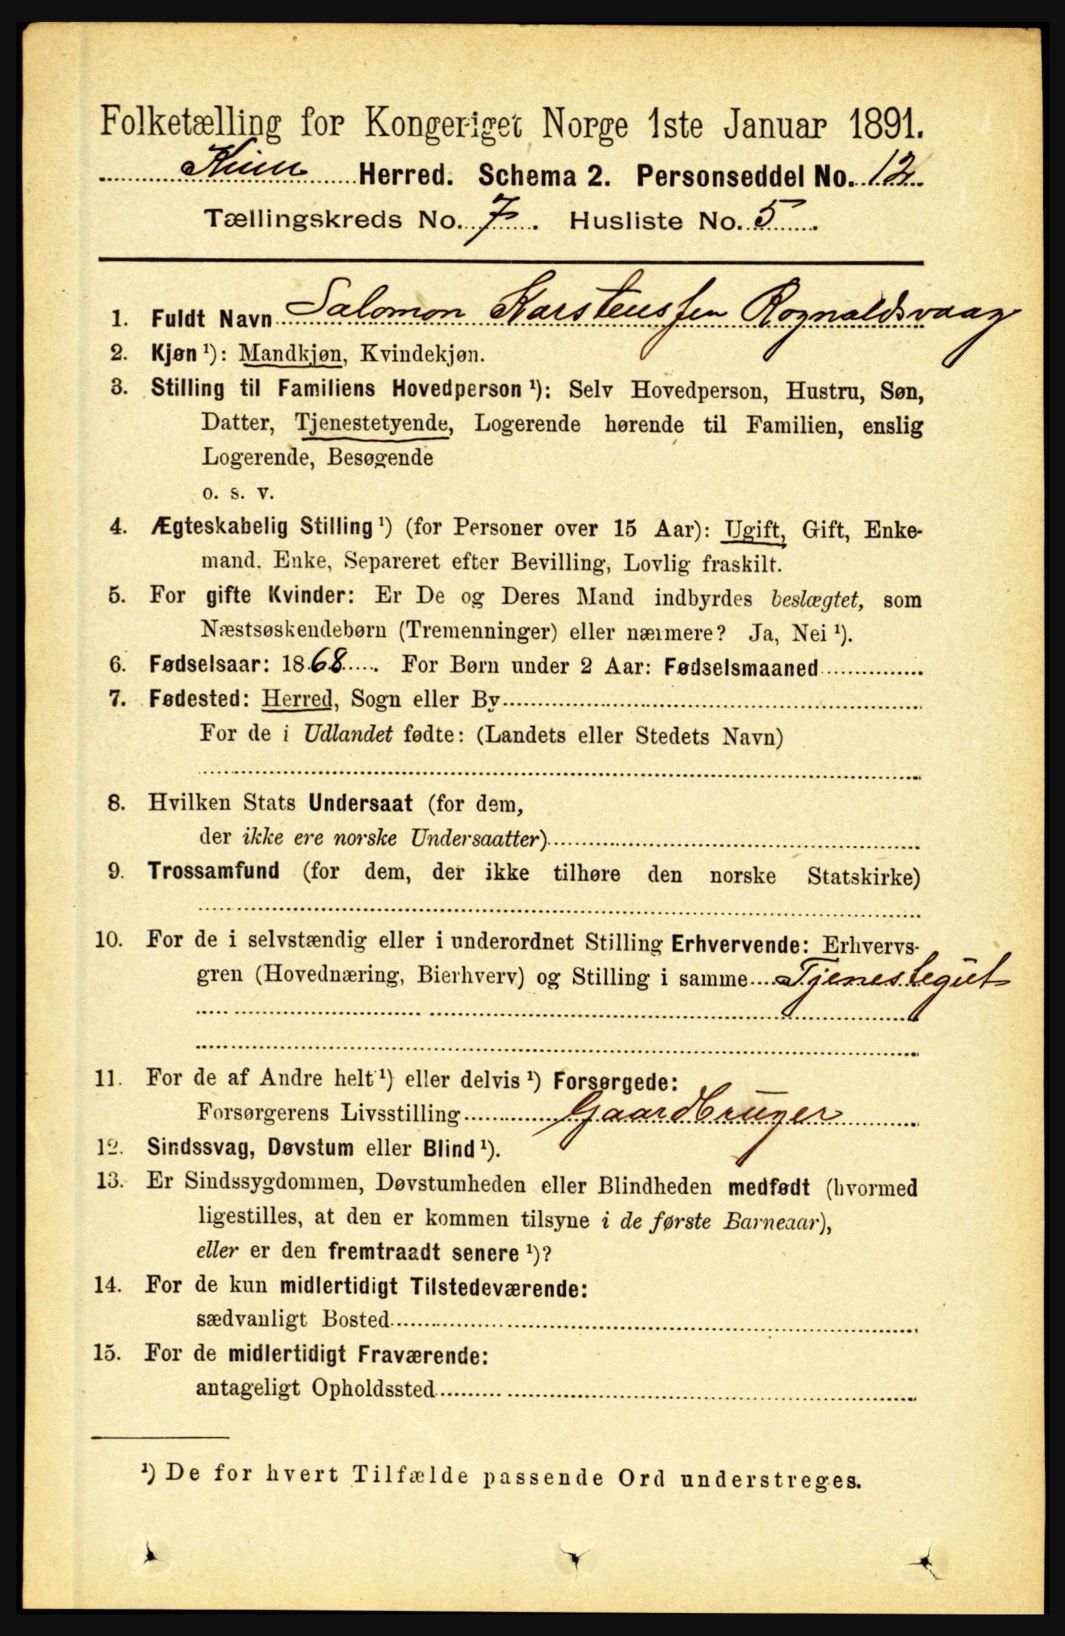 Folketælling for Kongeriget Norge 1ste Januar 1891.
Kinn Herred. Schema 2. Personseddel No. 12
Tællingskreds No. 7. Husliste No. 5.
1. Fuldt Navn Salomon Karstenssen Rognaldsvaag
2. Kjøn ¹): Mandkjøn, Kvindekjøn.
3. Stilling til Familiens Hovedperson ¹): Selv Hovedperson, Hustru, Søn,
Datter, Tjenestetyende, Logerende hørende til Familien, enslig
Logerende, Besøgende
o. s. v.
4. Ægteskabelig Stilling ¹) (for Personer over 15 Aar): Ugift, Gift, Enke-
mand, Enke, Separeret efter Bevilling, Lovlig fraskilt.
5. For gifte Kvinder: Er De og Deres Mand indbyrdes beslægtet, som
Næstsøskendebørn (Tremenninger) eller nærmere? Ja, Nei ¹).
6. Fødselsaar: 1868. For Børn under 2 Aar: Fødselsmaaned
7. Fødested: Herred, Sogn eller By
For de i Udlandet fødte: (Landets eller Stedets Navn)
8. Hvilken Stats Undersaat (for dem,
der ikke ere norske Undersaatter)
9. Trossamfund (for dem, der ikke tilhøre den norske Statskirke)
10. For de i selvstændig eller i underordnet Stilling Erhvervende: Erhvervs-
gren (Hovednæring, Bierhverv) og Stilling i samme Tjenestegut
11. For de af Andre helt ¹) eller delvis ¹) Forsørgede:
Forsørgerens Livsstilling Gaardbruger
12. Sindssvag, Døvstum eller Blind ¹).
13. Er Sindssygdommen, Døvstumheden eller Blindheden medfødt (hvormed
ligestilles, at den er kommen tilsyne i de første Barneaar),
eller er den fremtraadt senere ¹)?
14. For de kun midlertidigt Tilstedeværende:
sædvanligt Bosted
15. For de midlertidigt Fraværende:
antageligt Opholdssted
¹) De for hvert Tilfælde passende Ord understreges.